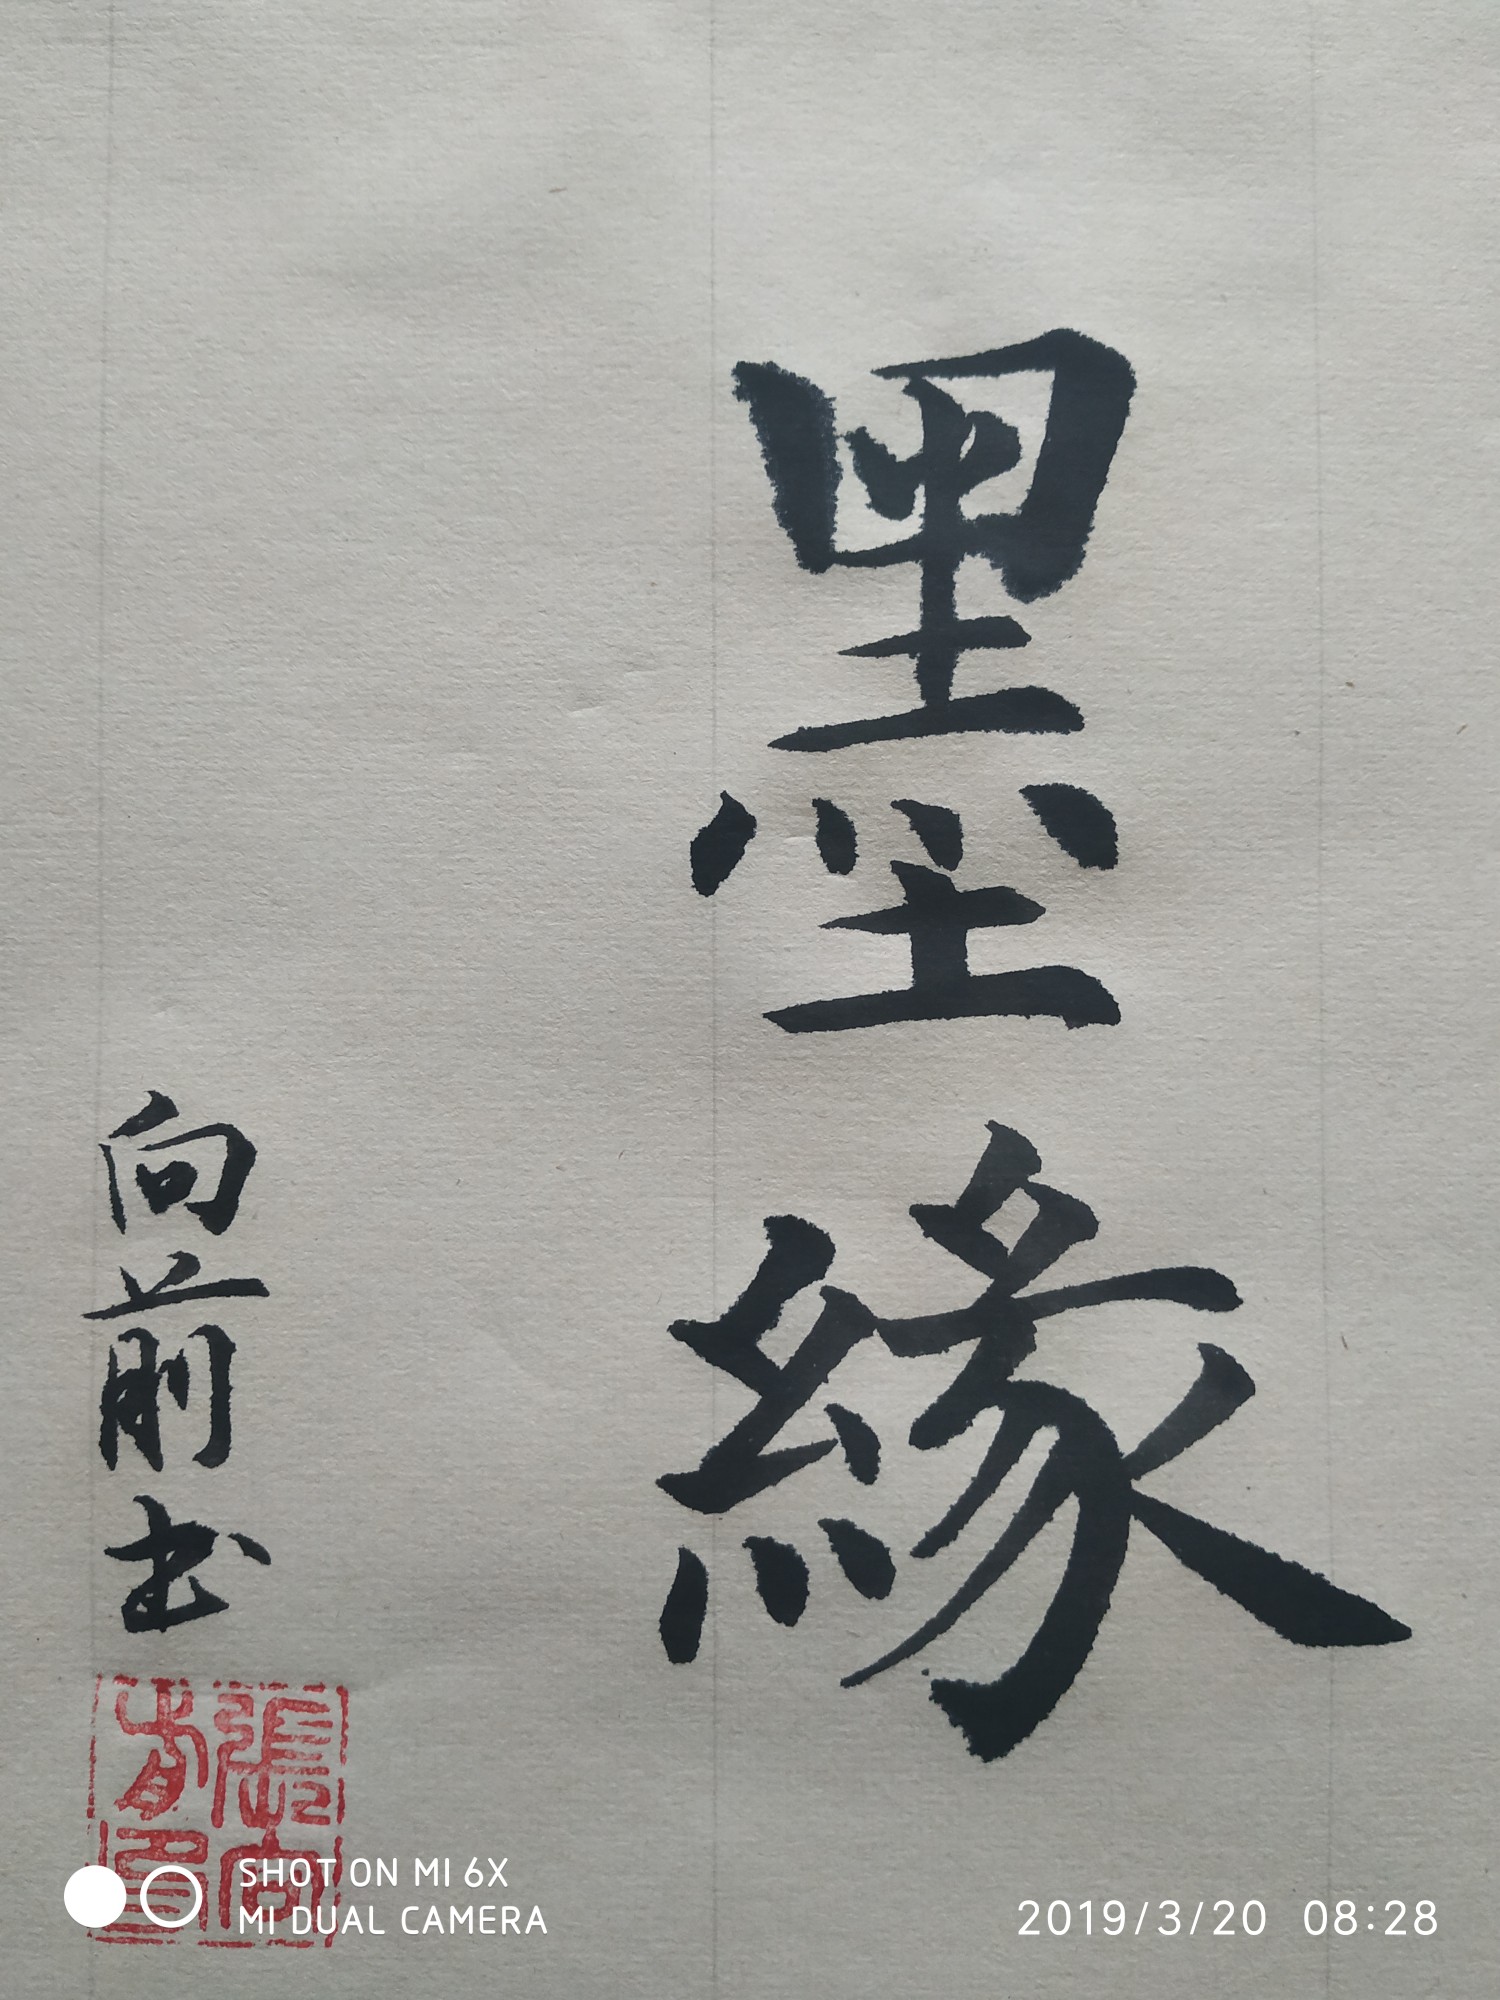 墨緣
向前书
張向前印
SHOT ON MI 6X
MI DUAL CAMERA
2019/3/20 08:28